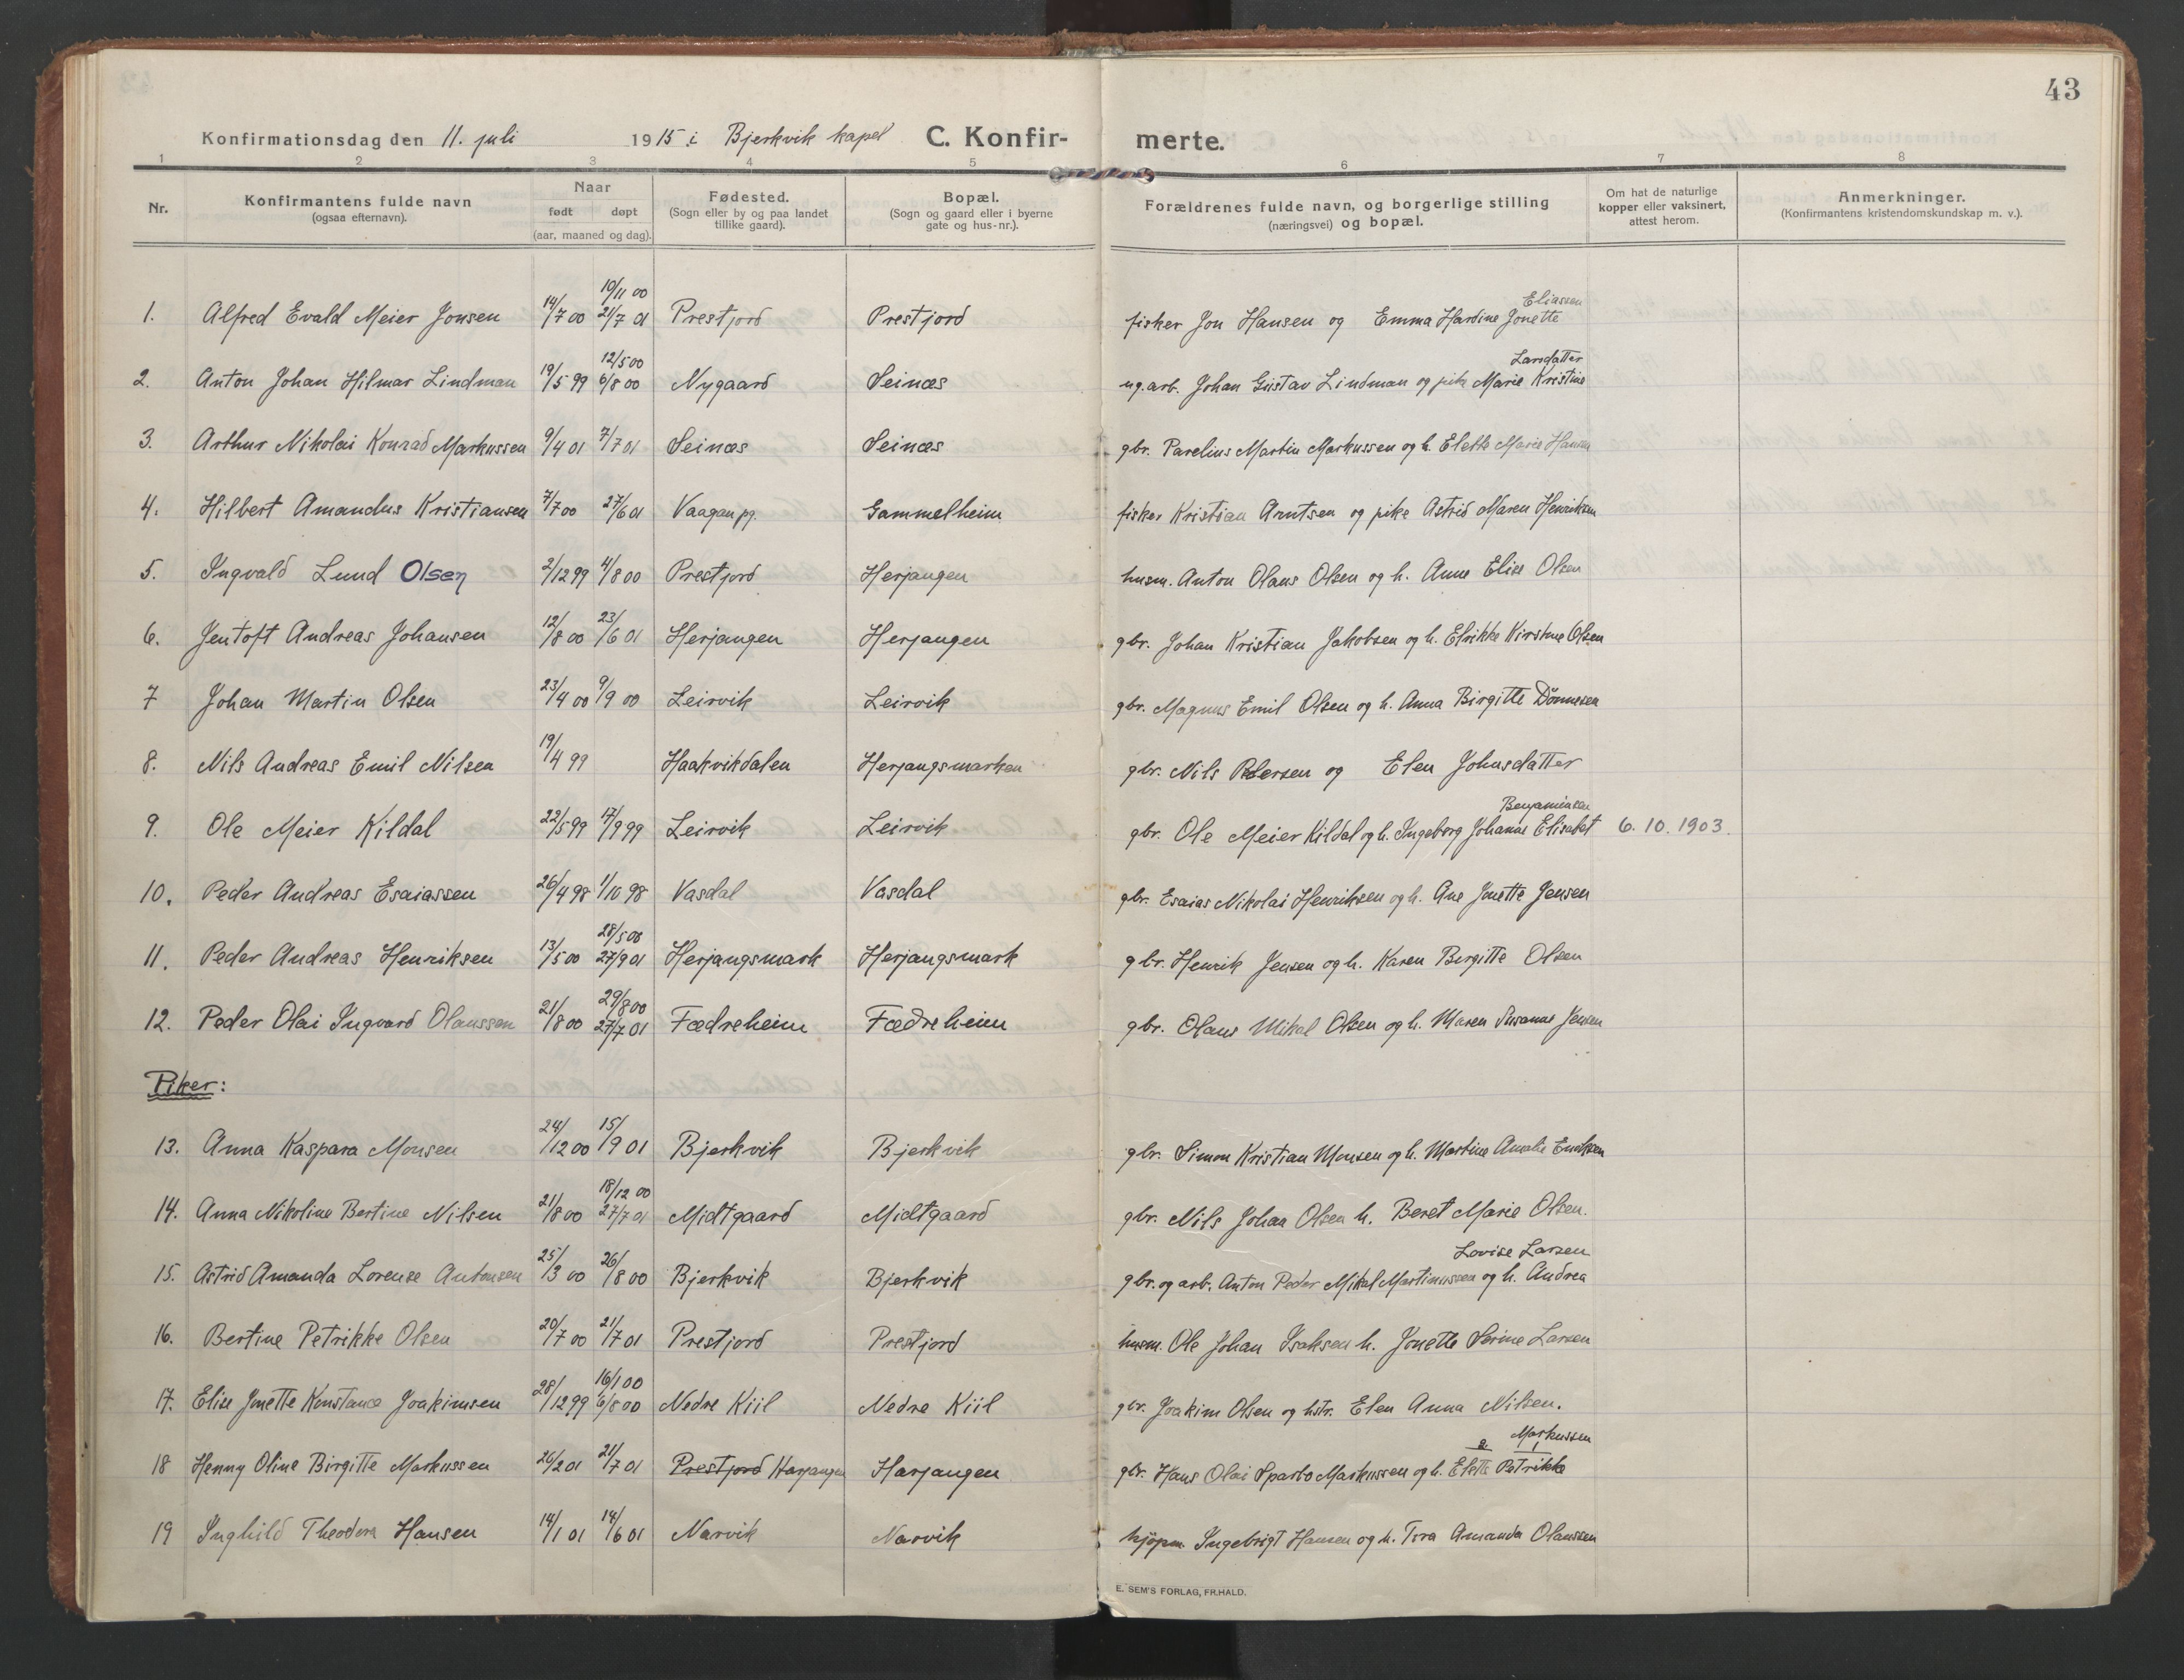 43
Konfirmationsdag den 11. juli 1915 i Bjerkvik kapel C. Konfir- merte.
1 2 3 4 5 6 7 8
Nr. Konfirmantens fulde navn (ogsaa efternavn). Naar født døpt (aar, maaned og dag). Fødested. (Sogn eller by og paa landet tillike gaard). Bopæl. (Sogn og gaard eller i byerne gate og hus-nr.). Forældrenes fulde navn, og borgerlige stilling (næringsvei) og bopæl. Om hat de naturlige kopper eller vaksinert, attest herom. Anmerkninger. (Konfirmantens kristendomskundskap m. v.).
10/11 00 Eliassen
1. Alfred Evald Meier Jonsen 14/7 00 21/7 01 Prestjord Prestjord fisker Jon Hansen og Emma Hardine Jonette
12/5 00 Larsdatter
2. Anton Johan Hilmar Lindman 19/5 99 6/8 00 Nygaard Seinæs ug.arb. Johan Gustav Lindman og pike Marie Kristine
3. Arthur Nikolai Konrad Markussen 9/4 01 7/7 01 Seinæs Seinæs gbr. Parelius Martin Markussen og h. Elette Marie Hansen
4. Hilbert Amandus Kristiansen 7/7 00 27/6 01 Vaagan pg. Gammelheim fisker Kristian Arntsen og pike Astrid Maren Henriksen
5. Ingvald Lund Olsen 2/12 99 4/8 00 Prestjord Herjangen husm. Anton Olaus Olsen og h. Anne Elise Olsen
6. Jentoft Andreas Johansen 12/8 00 23/6 01 Herjangen Herjangen gbr. Johan Kristian Jakobsen og h. Elrikke Kirstine Olsen
7 Johan Martin Olsen 23/4 00 9/9 00 Leirvik Leirvik gbr. Magnus Emil Olsen og h. Anna Birgitte Dönnesen
8. Nils Andreas Emil Nilsen 19/4 99 Haakvikdalen Herjangsmarken gbr. Nils Pedersen og Elen Johnsdatter
Benjaminsen
9. Ole Meier Kildal 22/5 99 17/9 99 Leirvik Leirvik gbr. Ole Meier Kildal og h. Ingeborg Johanne Elisabet 6. 10. 1903.
10. Peder Andreas Esaiassen 26/4 98 1/10 98 Vasdal Vasdal gbr. Esaias Nikolai Henriksen og h. Ane Jonette Jensen
28/5 00
11. Peder Andreas Henriksen 13/5 00 27/9 01 Herjangsmark Herjangsmark gbr. Henrik Jensen og h. Karen Birgitte Olsen
29/8 00
12. Peder Olai Ingvard Olaussen 21/8 00 27/7 01 Fædreheim Fædreheim gbr. Olaus Mikal Olsen og h. Maren Susanne Jensen
Piker:
13. Anna Kaspara Monsen 24/12 00 15/9 01 Bjerkvik Bjerkvik gbr. Simon Kristian Monsen og h. Martine Amalie Eriksen
18/12 00
14. Anna Nikoline Bertine Nilsen 21/8 00 27/7 01 Midtgaard Midtgaard gbr. Nils Johan Olsen h. Beret Marie Olsen.
Lovise Larsen
15. Astrid Amanda Lorense Antonsen 25/3 00 26/8 00 Bjerkvik Bjerkvik gbr. og arb. Anton Peder Mikal Martinussen og h. Andrea
16. Bertine Petrikke Olsen 20/7 00 21/7 01 Prestjord Prestjord husm. Ole Johan Isaksen h. Jonette Serine Larsen
16/1 00
17. Elise Jonette Konstance Joakimsen 28/12 99 6/8 00 Nedre Kiil Nedre Kiil gbr. Joakim Olsen og hstr. Elen Anna Nilsen.
Markussen
18 Henny Oline Birgitte Markussen 26/2 01 21/7 01 Prestjord Harjangen Harjangen gbr. Hans Olai Sparbo Markussen og h. Elette Petrikke
19 Inghild Theodora Hansen 14/1 01 14/6 01 Narvik Narvik kjöpm. Ingebrigt Hansen og h. Tora Amanda Olaussen
E. SEM'S FORLAG, FR.HALD.